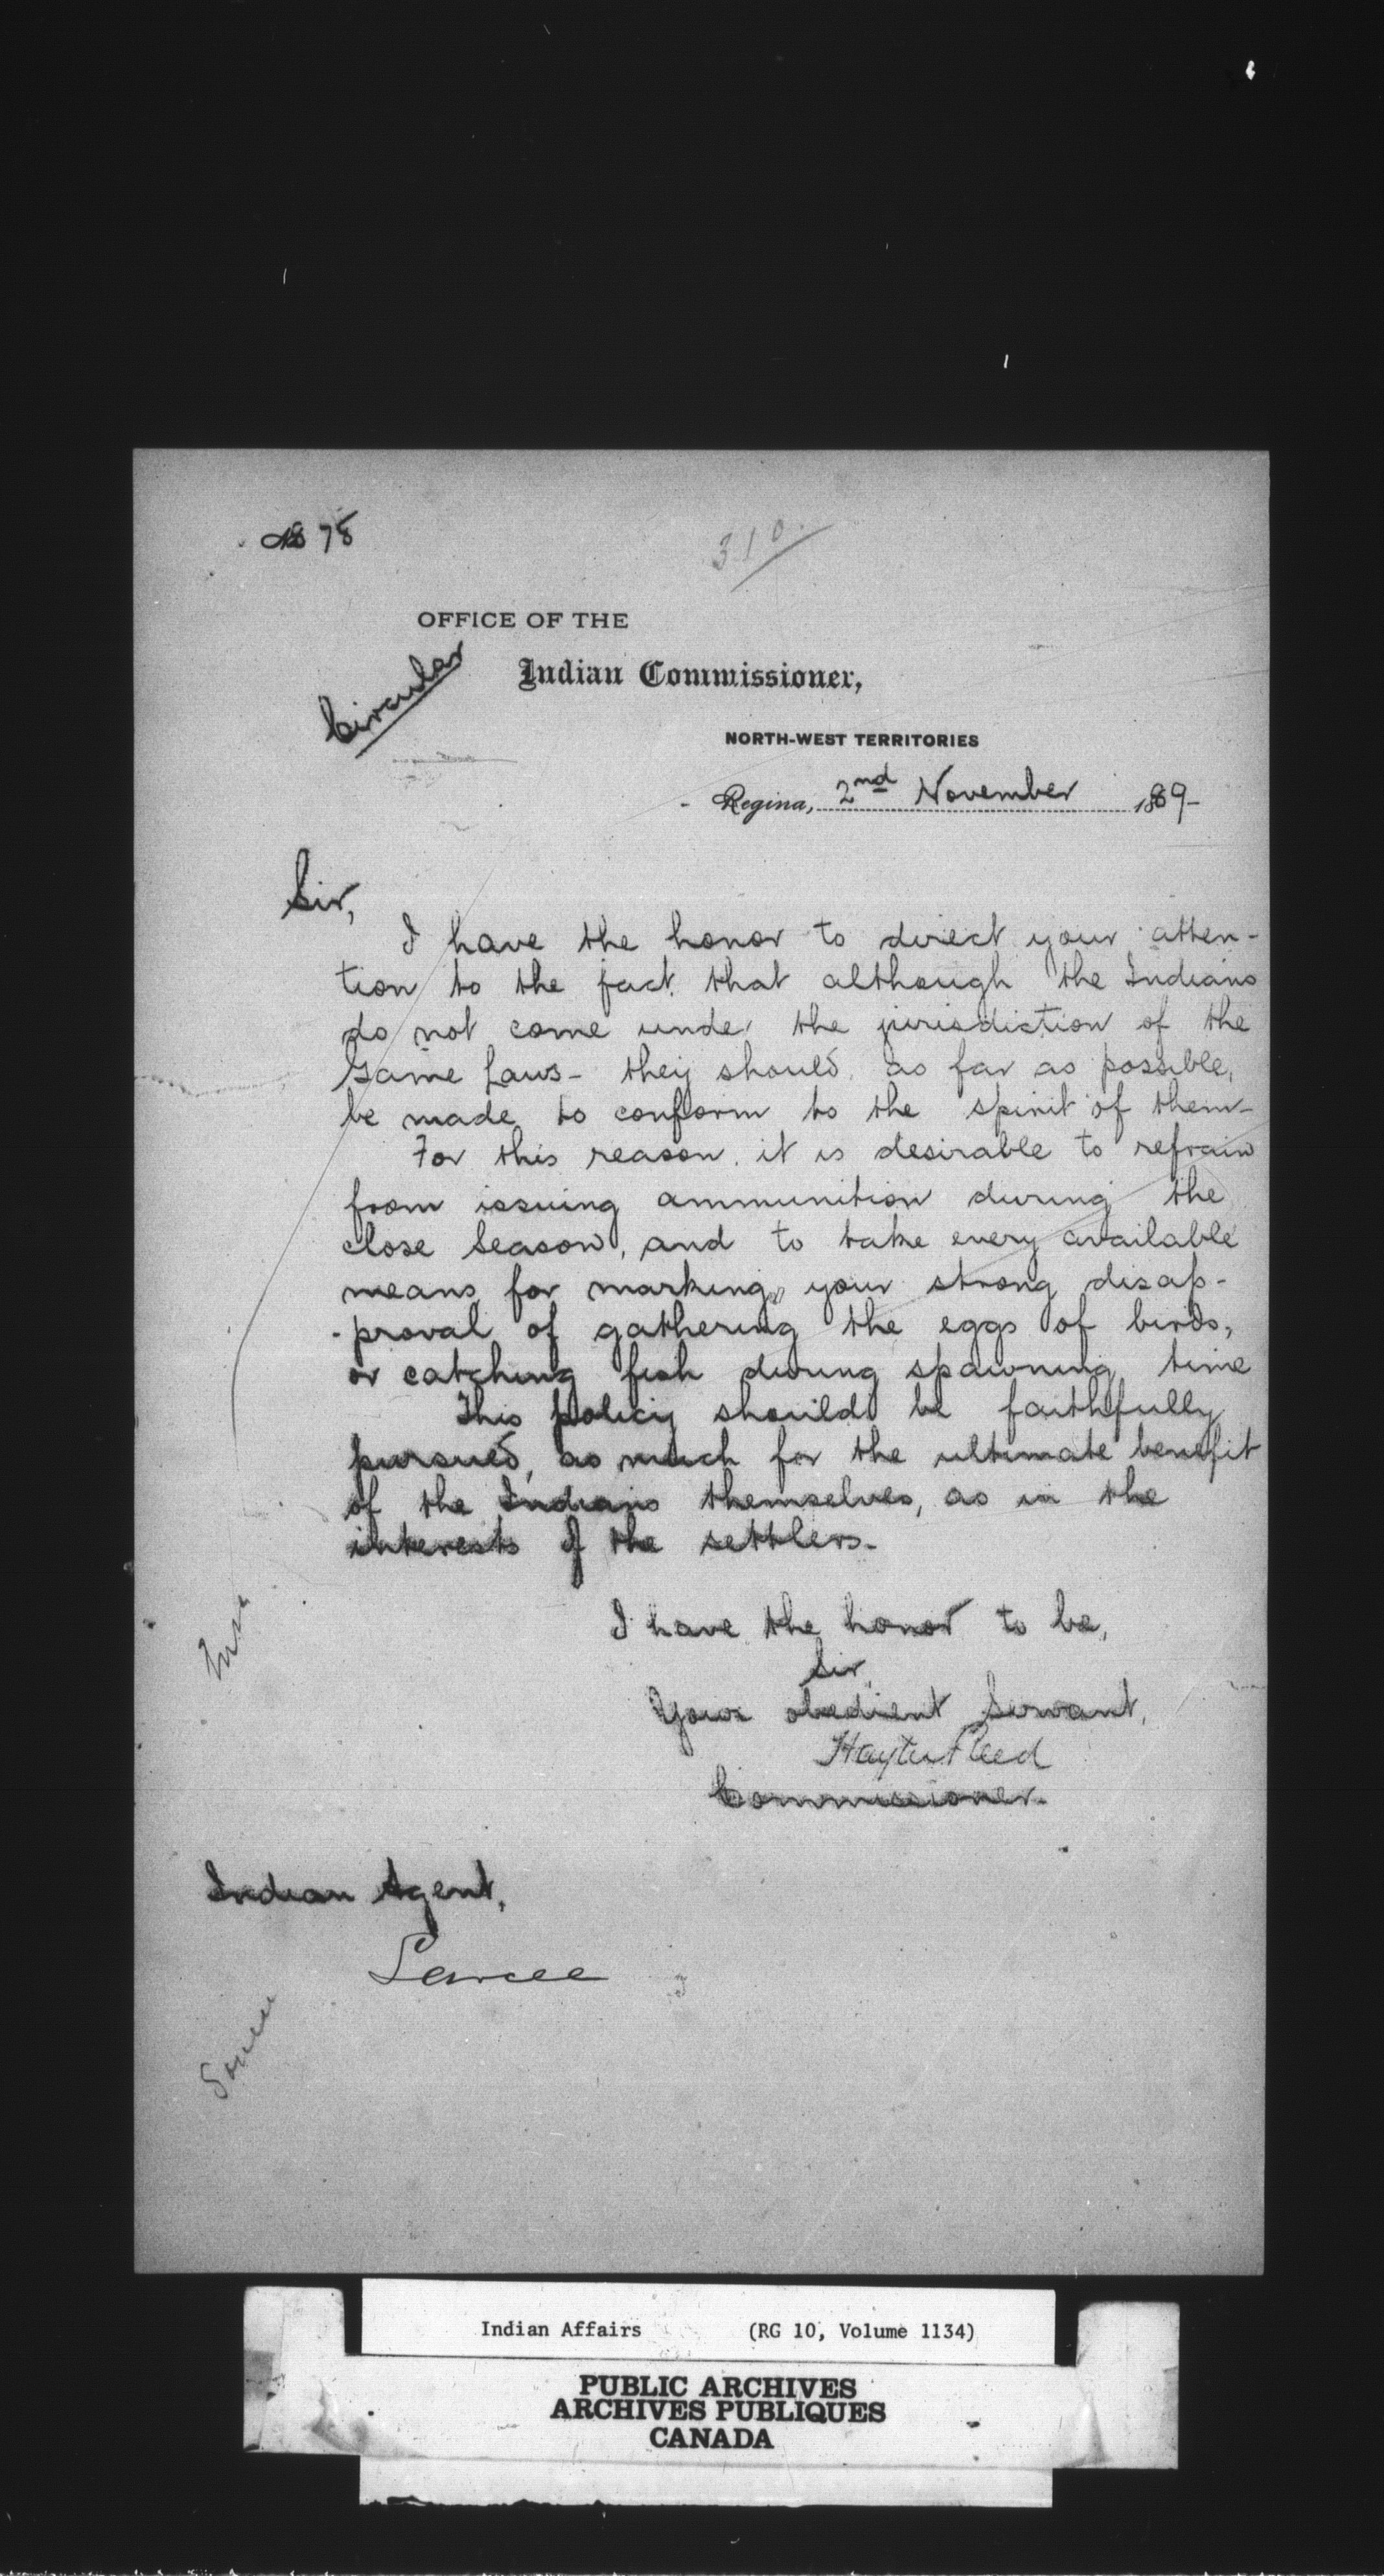 No 78
310
OFFICE OF THE
Indian Commissioner,
Circular
NORTH-WEST TERRITORIES
Regina, 2nd November 1889-
Sir,
I have the honor to direct your atten-
tion to the fact that although the Indians
do not come under the jurisdiction of the
Game Laws - they should, as far as possible,
be made to conform to the spirit of them-
For this reason, it is desirable to refrain
from issuing ammunition during the
close Season, and to take every available
means for marking your strong disap-
-proval of gathering the eggs of birds,
or catching fish during spawning time
This policy should be faithfully
pursued, as much for the ultimate benefit
of the Indians themselves, as in the
interests of the settlers-
I have the honor to be,
Sir,
Your obedient Servant,
Hayter Reed
Commissioner.
Indian Agent,
Sarcee
Indian Affairs (RG 10, Volume 1134)
PUBLIC ARCHIVES
ARCHIVES PUBLIQUES
CANADA